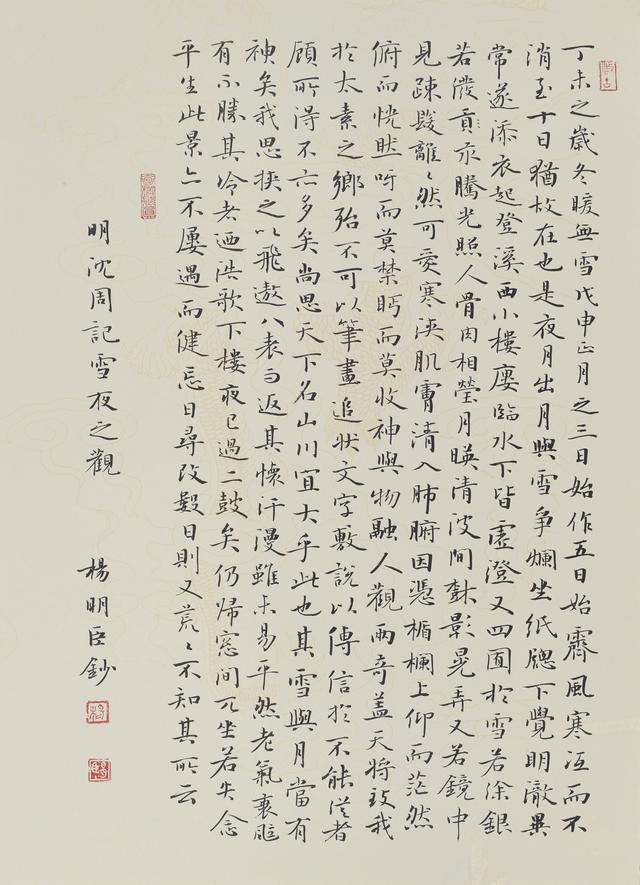 丁未之歲冬暖無雪戊申正月之三日始作五日始霽風寒冱而不
消至十日猶故在也是夜月出月與雪爭爛坐紙牕下覺明澈異
常遂添衣起登溪西小樓樓臨水下皆虛澄又四囿於雪若涂銀
若潑貢汞騰光照人骨肉相瑩月暎清波間樹影晃弄又若鏡中
見疎髮離〻然可愛寒浹肌膚清入肺腑因憑楯欄上仰而茫然
俯而恍然呀而莫禁眄而莫收神與物融人觀兩奇蓋天將致我
於太素之鄉殆不可以筆畫追狀文字敷說以傳信於不能從者
顧所得不亦多矣尚思天下名山川宜大乎此也其雪與月當有
神矣我思挾之以飛遨八表而返其懷汗漫雖未易平然老氣衰颯
有不勝其冷者迺浩歌下樓夜已過二鼓矣仍歸窓間兀坐若失念
平生此景亦不屢遇而健忘日尋改數日則又荒〻不知其所云
明沈周記雪夜之觀
楊明臣鈔